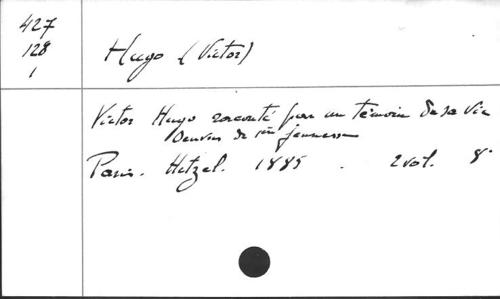 427
128
1
Hugo (Victor)
Victor Hugo raconté par un témoin de sa vie
Oeuvres de 1ère jeunesse
Paris. Hetzel. 1885. 2 vol. 8°